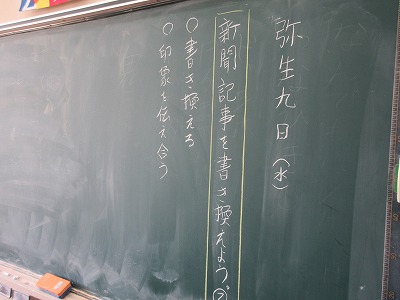 弥生九日(水)
新聞記事を書き換えよう②
○書き換える
○印象を伝え合う